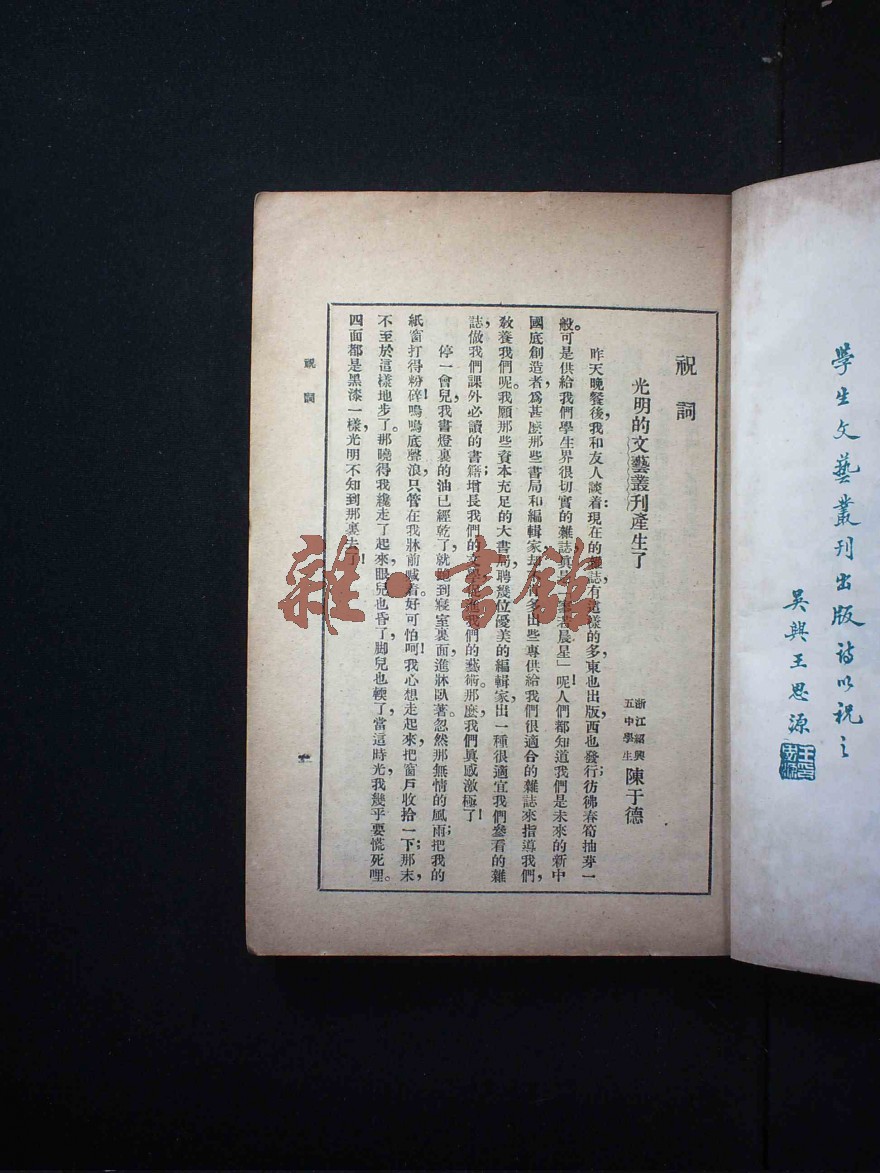 學生文藝叢刊出版詩以祝之
吳興王思源
祝詞
光明的文藝叢刊產生了
浙江紹興
五中學生
陳于德
昨天晚餐後，我和友人談着：現在的雜誌有這樣的多，東也出版，西也發行；彷彿春筍抽芽一
般。可是供給我們學生界很切實的雜誌，眞是「寥若晨星」呢！人們都知道我們是未來的新中
國底創造者，爲甚麽那些書局和編輯家，却不肯多出些專供給我們很適合的雜誌來指導我們，
敎養我們呢。我願那些資本充足的大書局，聘幾位優美的編輯家，出一種很適宜我們參看的雜
誌，做我們課外必讀的書籍；增長我們的文學，促進我們的藝術。那麽，我們眞感激極了！
停一會兒，我書燈裏的油已經乾了，就跑到寢室裏面，進牀臥著。忽然那無情的風雨；把我的
紙窗打得粉碎！嗚嗚底聲浪，只管在我牀前喊着。好可怕呵！我心想走起來，把窗戶收拾一下；那末，
不至於這樣地步了。那曉得我纔走了起來，眼兒也昏了，脚兒也輭了，當這時光，我幾乎要慌死哩。
四面都是黑漆一樣，光明不知到那裏去了！
祝詞
一
雜·書館